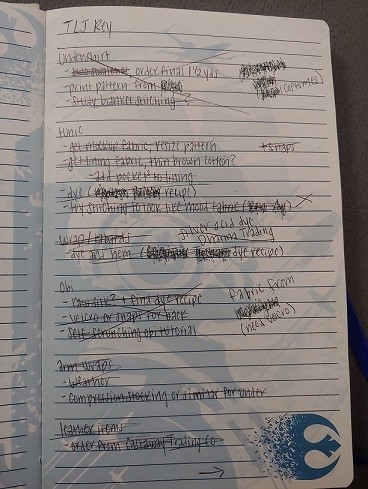 TLJ Rey
Undershirt
- order final 1 1/2 yds
- print pattern from
- study blanket stitching ?
(eptomes)
tunic
- get mockup fabric, resize pattern
+ snaps
- get lining fabric, thin brown cotton?
- add pockets to lining
- dye ( recipe)
- try stitching to look like hood fabric
silver acid dye
Dharma Trading
wrap/tabards
- dye and hem ( dye recipe)
Obi
- raw silk? + find dye recipe
- velcro or snaps for back
- self-scrunching obi tutorial
fabric from
(need velcro)
arm wraps
- weather
- compression stocking or similar for under
leather items
- order from Castaway Trading Co